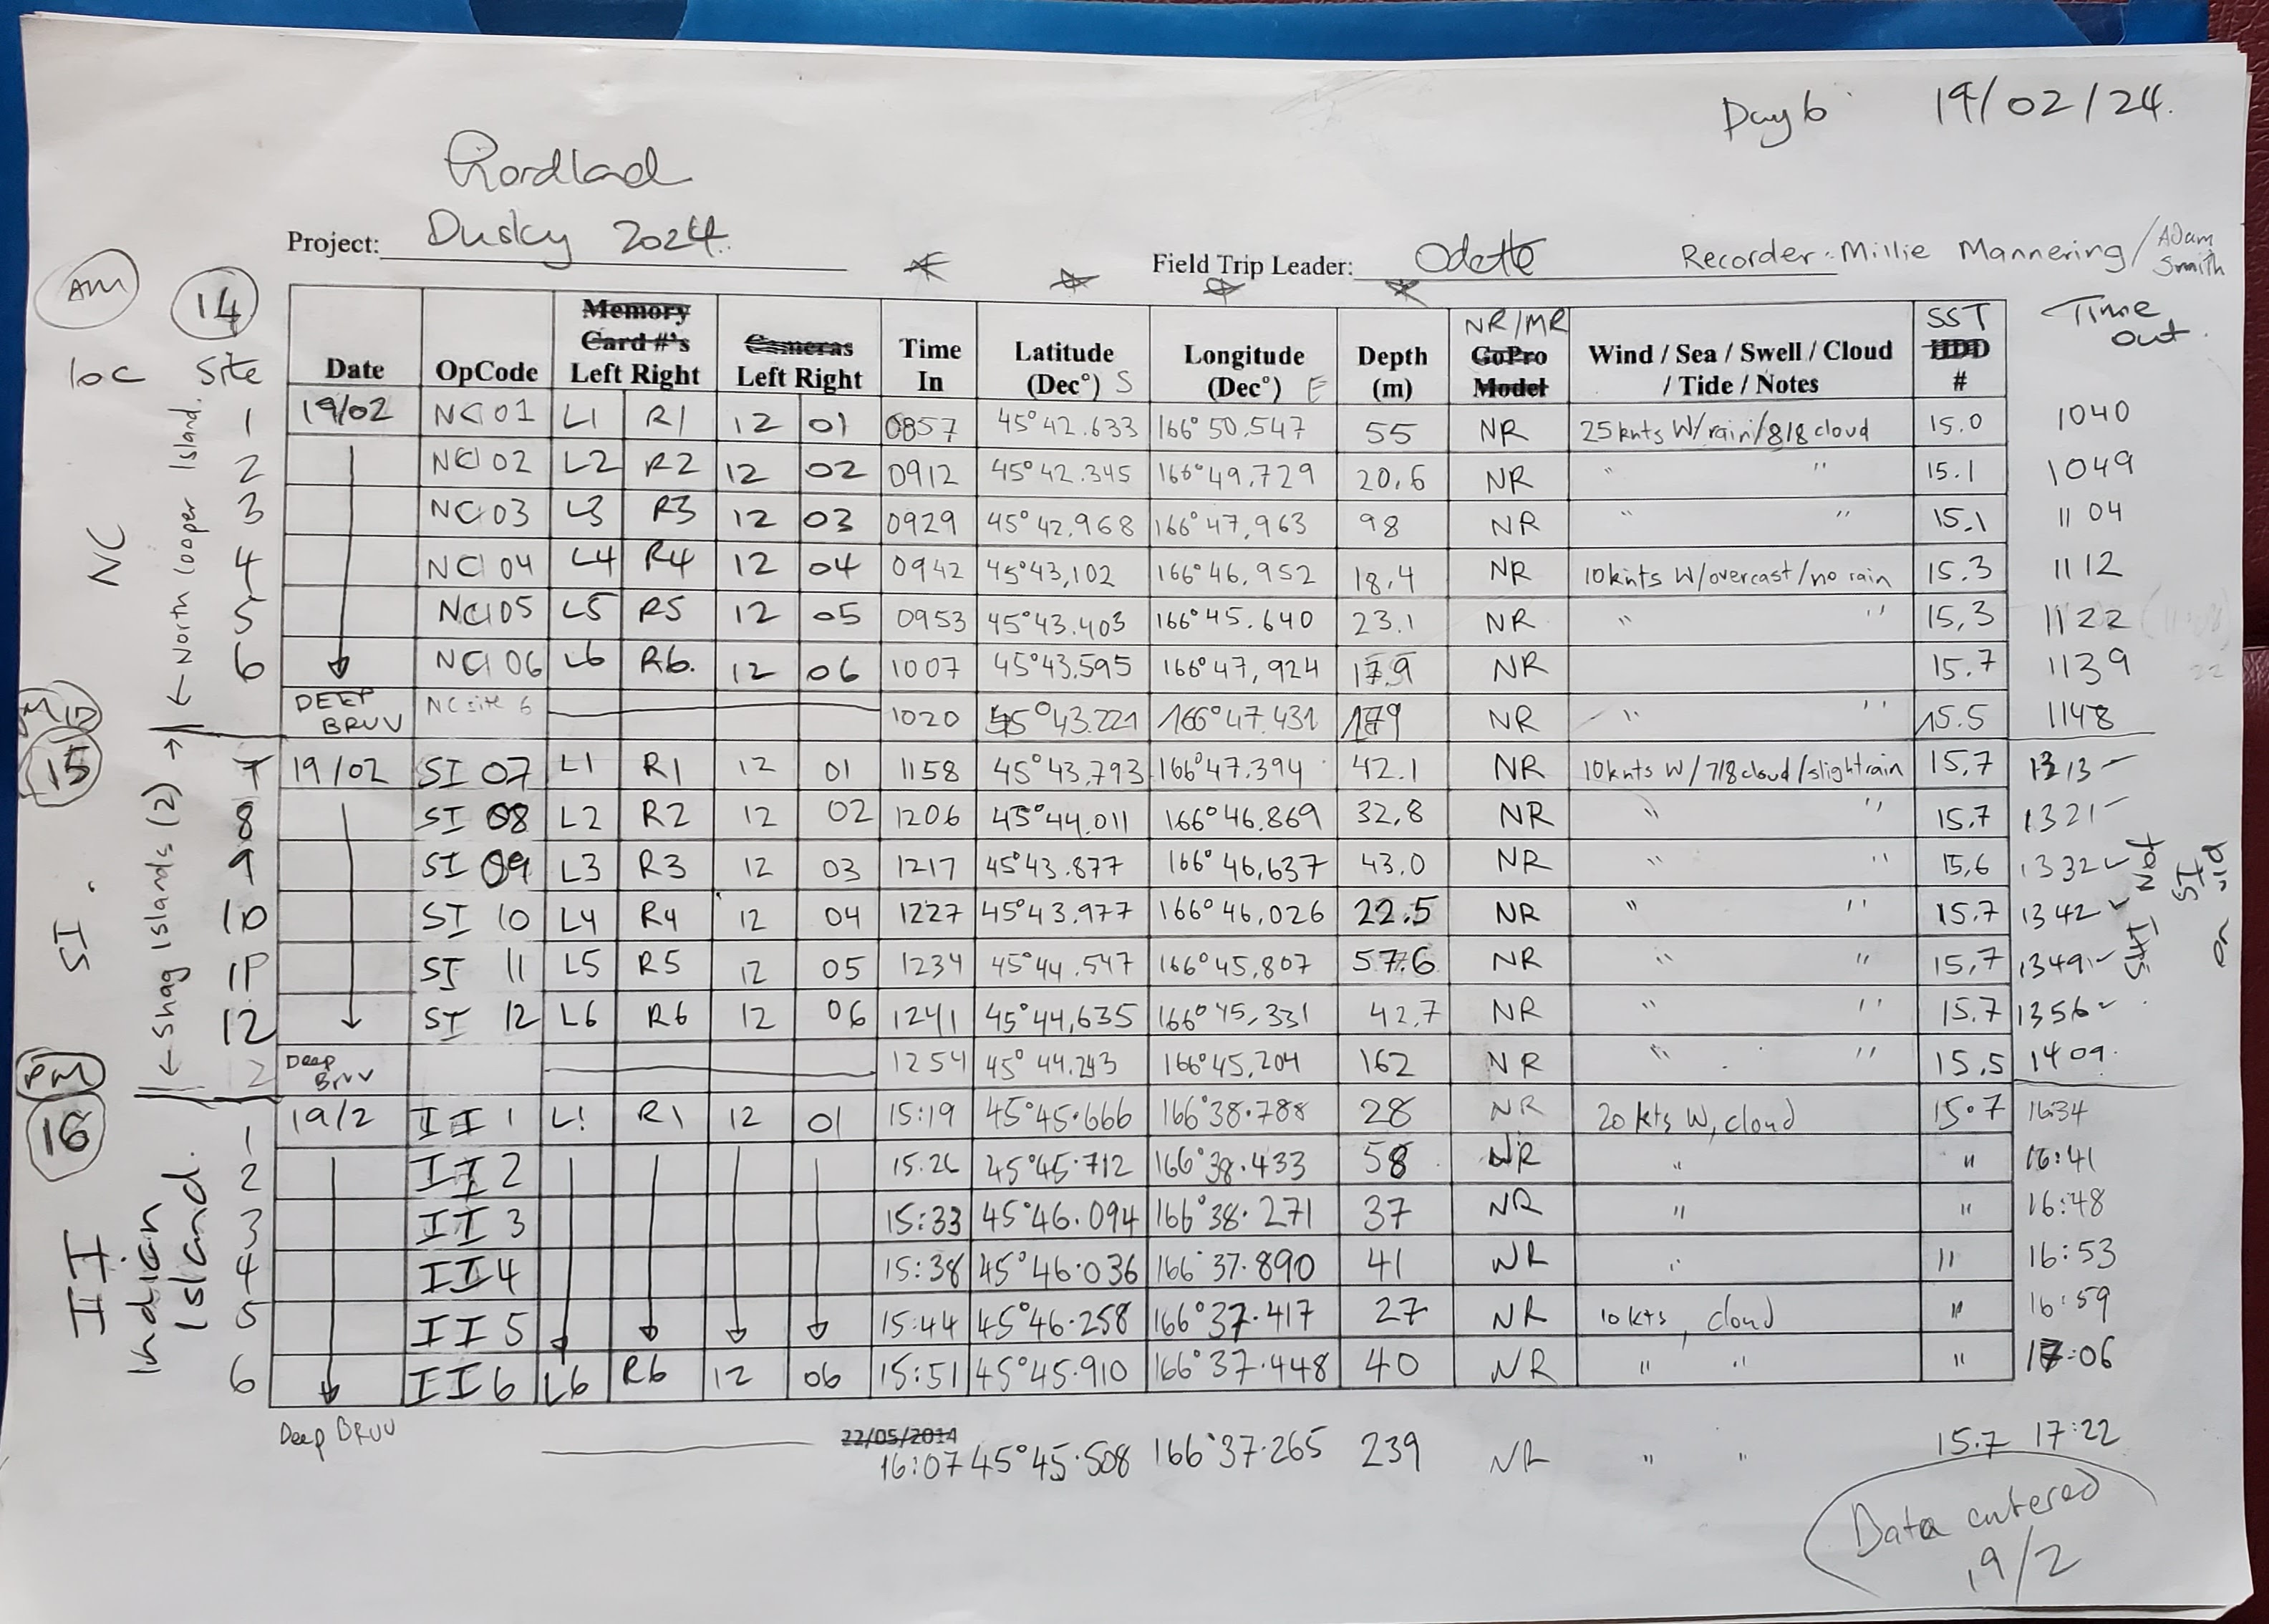 Day 6 19/02/24.
Fiordland
Project: Dusky 2024.
Field Trip Leader: Odette Recorder: Millie Mannering / Adam Smith
AM 14
loc Site Date OpCode Memory Card #'s Left Right Cameras Left Right Time In Latitude (Dec°) S Longitude (Dec°) E Depth (m) NR/MR GoPro Model Wind / Sea / Swell / Cloud / Tide / Notes SST HDD # Time out.
NC ← North Cooper Island.
1 19/02 NCI 01 L1 R1 12 01 0857 45°42.633 166°50.547 55 NR 25knts W/rain/8/8 cloud 15.0 1040
2 NCI 02 L2 R2 12 02 0912 45°42.345 166°49.729 20.6 NR " " 15.1 1049
3 NCI 03 L3 R3 12 03 0929 45°42.968 166°47.963 98 NR " " 15.1 1104
4 NCI 04 L4 R4 12 04 0942 45°43.102 166°46.952 18.4 NR 10knts W/overcast/no rain 15.3 1112
5 NCI 05 L5 R5 12 05 0953 45°43.403 166°45.640 23.1 NR " " 15.3 1122
6 NCI 06 L6 R6. 12 06 1007 45°43.595 166°47.924 17.9 NR 15.7 1139
DEEP BRUV NC site 6 1020 45°43.221 166°47.431 179 NR " " 15.5 1148
15
SI. ← Shag Islands (2) →
7 19/02 SI 07 L1 R1 12 01 1158 45°43.793 166°47.394 42.1 NR 10knts W/7/8cloud/slightrain 15.7 1313
8 SI 08 L2 R2 12 02 1206 45°44.011 166°46.869 32.8 NR " " 15.7 1321
9 SI 09 L3 R3 12 03 1217 45°43.877 166°46.637 43.0 NR " " 15.6 1332
10 SI 10 L4 R4 12 04 1227 45°43.977 166°46.026 22.5 NR " " 15.7 1342
11 SI 11 L5 R5 12 05 1234 45°44.547 166°45.807 57.6 NR " " 15.7 1349
12 SI 12 L6 R6 12 06 1241 45°44.635 166°45.331 42.7 NR " " 15.7 1356
2 Deep BRUV 1254 45°44.243 166°45.204 162 NR " " 15.5 1409
SHI Not SI on vid
PM 16
II Indian Island.
1 19/2 II 1 L1 R1 12 01 15:19 45°45.666 166°38.788 28 NR 20 kts W, cloud 15.7 1634
2 II 2 15.26 45°45.712 166°38.433 58 NR " " 16:41
3 II 3 15:33 45°46.094 166°38.271 37 NR " " 16:48
4 II 4 15:38 45°46.036 166°37.890 41 NR " " 16:53
5 II 5 15:44 45°46.258 166°37.417 27 NR 10 kts, cloud " 16:59
6 II 6 L6 R6 12 06 15:51 45°45.910 166°37.448 40 NR " " " 17:06
22/05/2014
Deep BRUV 16:07 45°45.508 166°37.265 239 NR " " 15.7 17:22
Data entered
19/2